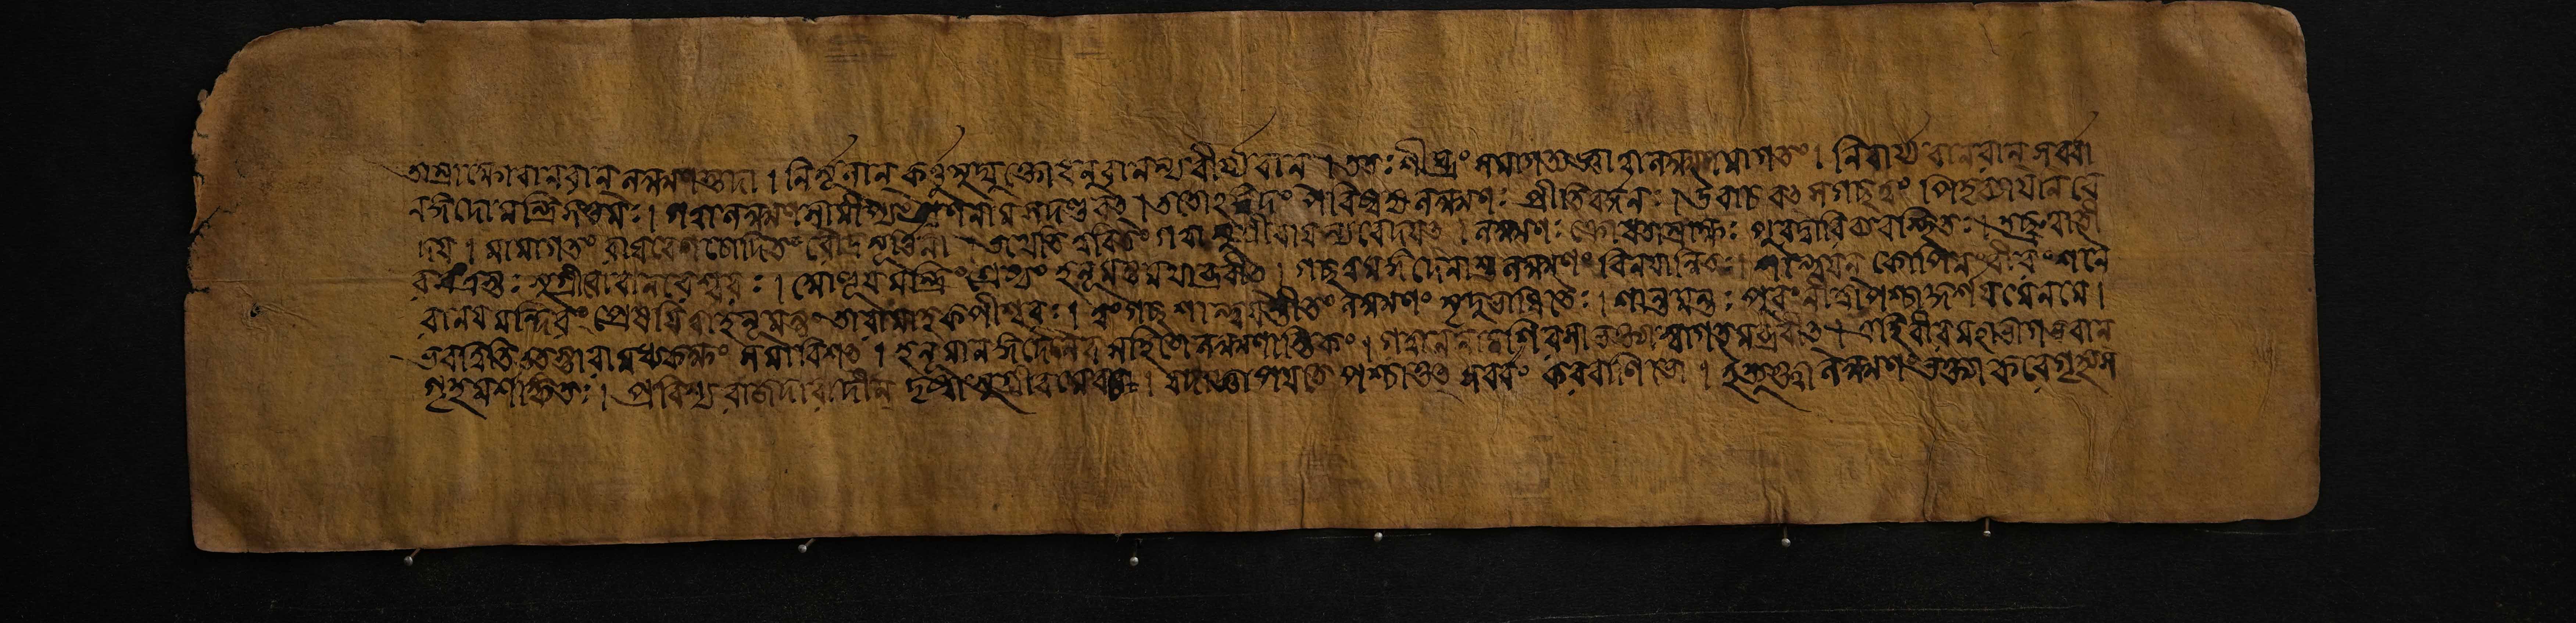 তাম্রাক্ষোবানরান্ লক্ষ্মণস্তদা । নির্ম্মূলান্ কর্ত্তুমুদ্যুক্তোধনুরানম্যবীর্য্যবান । ততঃ শীঘ্রং সমাগত্যজ্ঞাত্বালক্ষ্মণমাগতং । নিবার্য্যবানরান্ সর্ব্বা
নঙ্গদোমন্ত্রিসত্তমঃ । গত্বালক্ষ্মণসামীপ্যং প্রণনামসদণ্ডবৎ । ততোঽঙ্গদং পরিষ্বজ্যলক্ষ্মণঃ প্রীতিবর্দ্ধনঃ । উবাচবৎসগচ্ছত্বং পিতৃব্যায়নিবে
দয় । মামাগতং রাঘবেণচোদিতং রৌদ্রমূর্ত্তিনা । তথেতিত্বরিতং গত্বাসুগ্রীবায়ন্যবেদয়ৎ । লক্ষ্মণঃ ক্রোধতাম্রাক্ষঃ পুরদ্বারিবহিস্থিতঃ । তচ্ছ্রুত্বাতী
বসংত্রস্তঃ সুগ্রীবোবানরেশ্বরঃ । আহূয়মন্ত্রিণাং শ্রেষ্ঠং হনূমন্তমথাব্রবীৎ । গচ্ছত্বমঙ্গদেনাশুলক্ষ্মণং বিনয়ান্বিতঃ । শান্ত্বয়ন্ কোপিতংবীরংশনৈ
রানয়মন্দিরং প্রেষয়িত্বাহনূমন্তং তারামাহকপীশ্বরঃ । ত্বং গচ্ছশান্ত্বয়ন্তীতং লক্ষ্মণং মৃদুভাষিতৈঃ । শান্তমন্তঃ পুরংনীত্বাপশ্চাদ্দর্শয়মেনমে ।
ভবত্বিতিততস্তারামধ্যকক্ষং সমাবিশৎ । হনূমানঙ্গদেনৈবসহিতোলক্ষ্মণান্তিকং । গত্বাননামশিরসাভক্ত্যাস্বাগতমব্রবীৎ । এহিবীরমহাভাগভবান
গৃহমশঙ্কিতঃ । প্রবিশ্যরাজদারাদীন্ দৃষ্ট্বাসুগ্রীবমেবচ । যদাজ্ঞাপয়তেপশ্চাত্তৎ সর্ব্বং করবাণিভো । ইত্যুক্ত্বালক্ষ্মণংভক্ত্যাকরেগৃহ্যস